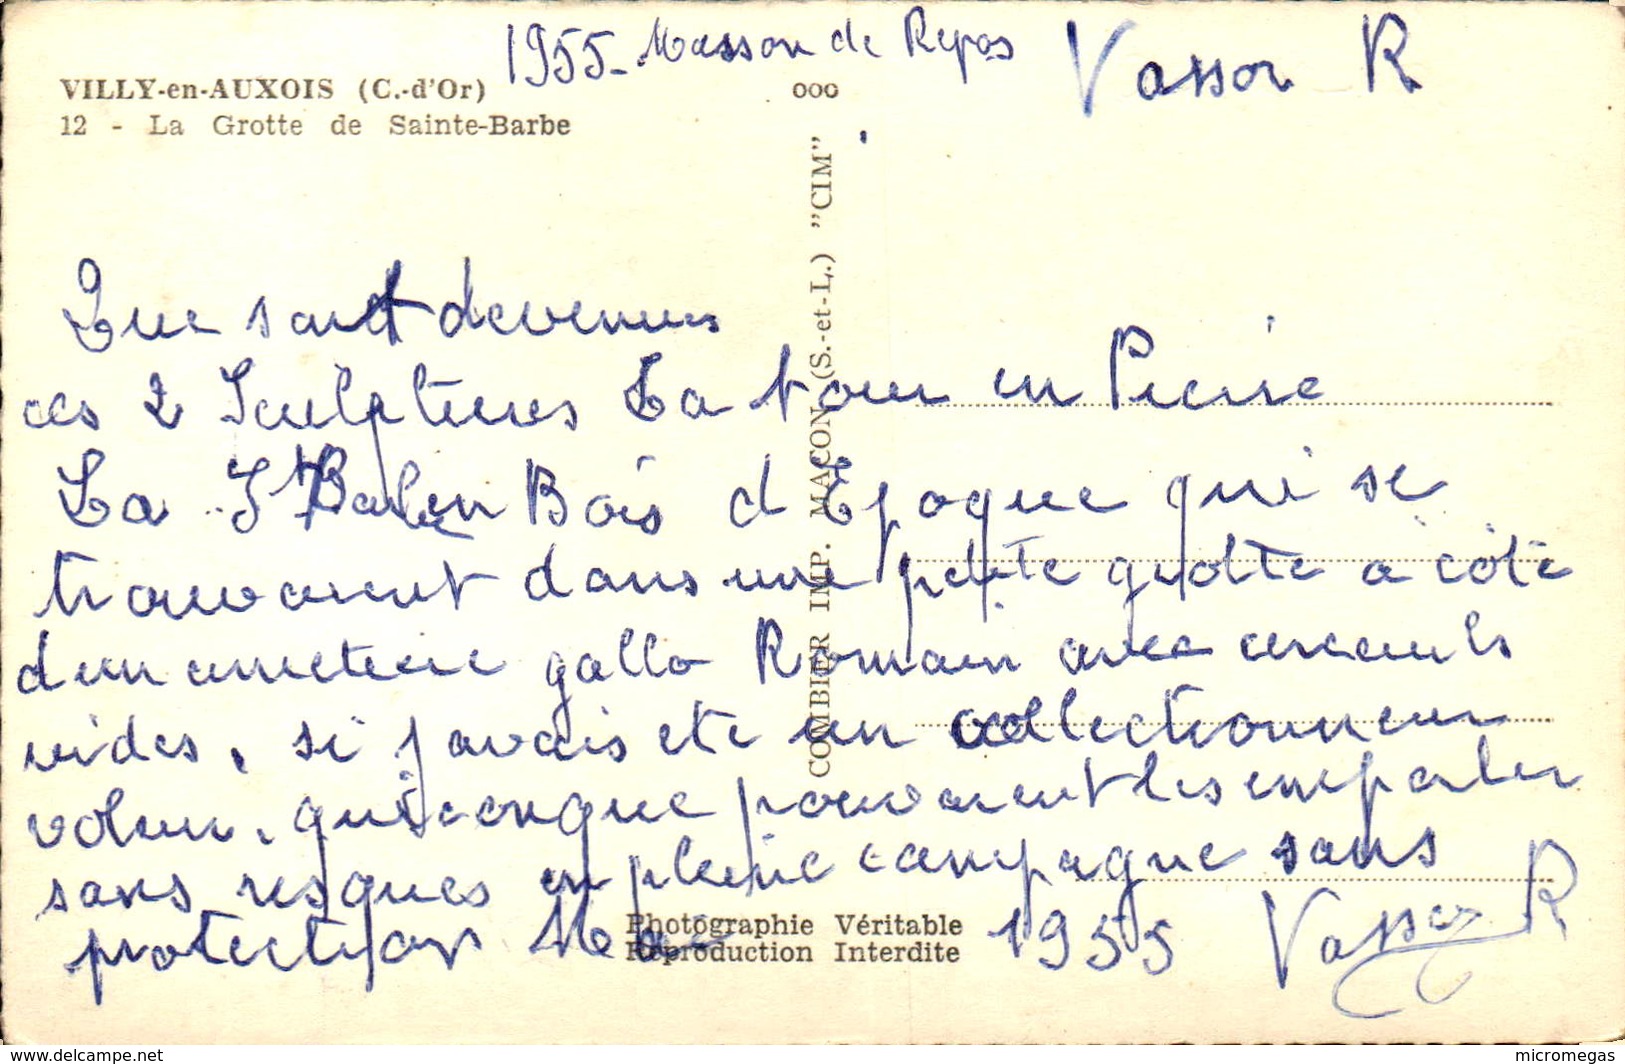 1955- Maison de Repos
Vasson R
VILLY-en-AUXOIS (C.-d'Or)
12 - La Grotte de Sainte-Barbe
ooo
COMBIER IMP. MACON (S.-et-L.) "CIM"
Que sont devenues
ces 2 Sculptures La tour en Pierre
La Ste Barbe en Bois d Epoque qui se
trouvaient dans une petite grotte a coté
d'un cimetiere gallo Romain avec cercueils
vides, si j avais ete un collectionneur
voleur. quiconque pouvaient les emporter
sans risques en pleine campagne sans
protection 1955 Vasson R
Photographie Véritable
Reproduction Interdite
www.delcampe.net
micromegas